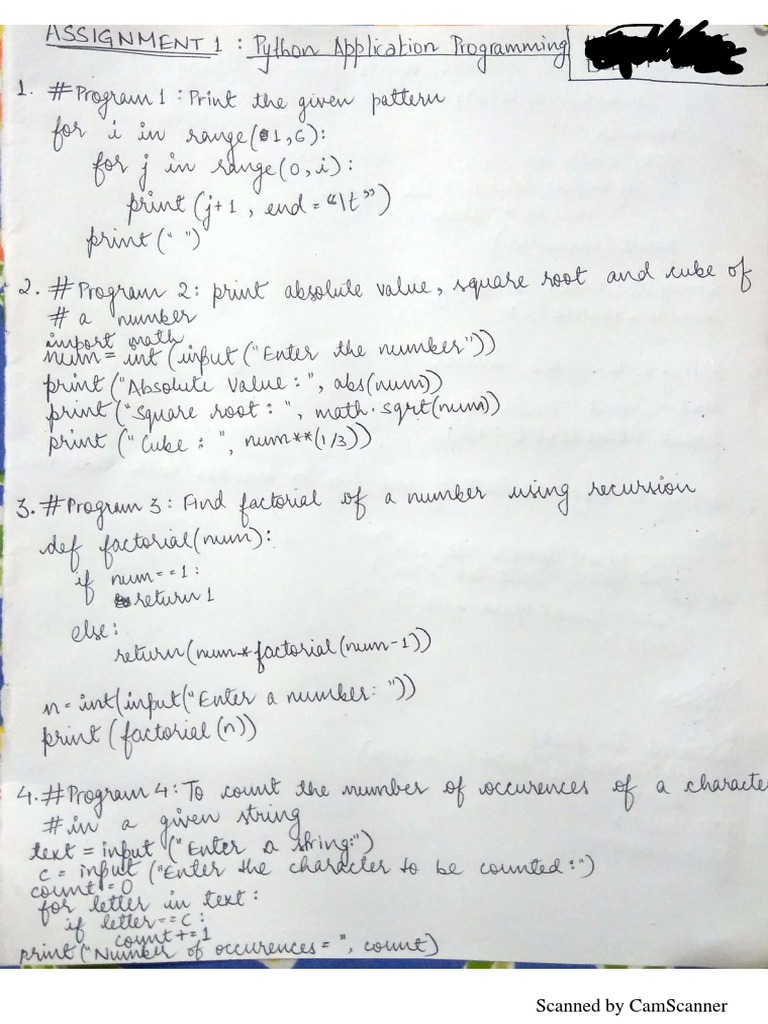 ASSIGNMENT 1 : Python Application Programming
1. # Program 1 : Print the given pattern
for i in range(1,6):
for j in range(0,i):
print (j+1, end = "\t")
print(" ")
2. # Program 2: print absolute value, square root and cube of
# a number
import math
num = int (input ("Enter the number"))
print ("Absolute Value : ", abs(num))
print ("Square root : ", math.sqrt(num))
print ("Cube : ", num**(1/3))
3. # Program 3 : Find factorial of a number using recursion
def factorial(num):
if num==1:
return 1
else:
return(num*factorial(num-1))
n = int(input("Enter a number: "))
print (factorial(n))
4. # Program 4: To count the number of occurences of a characte
# in a given string
text = input ("Enter a string:")
c = input ("Enter the character to be counted :")
count = 0
for letter in text :
if letter==c :
count += 1
print ("Number of occurences = ", count)
Scanned by CamScanner